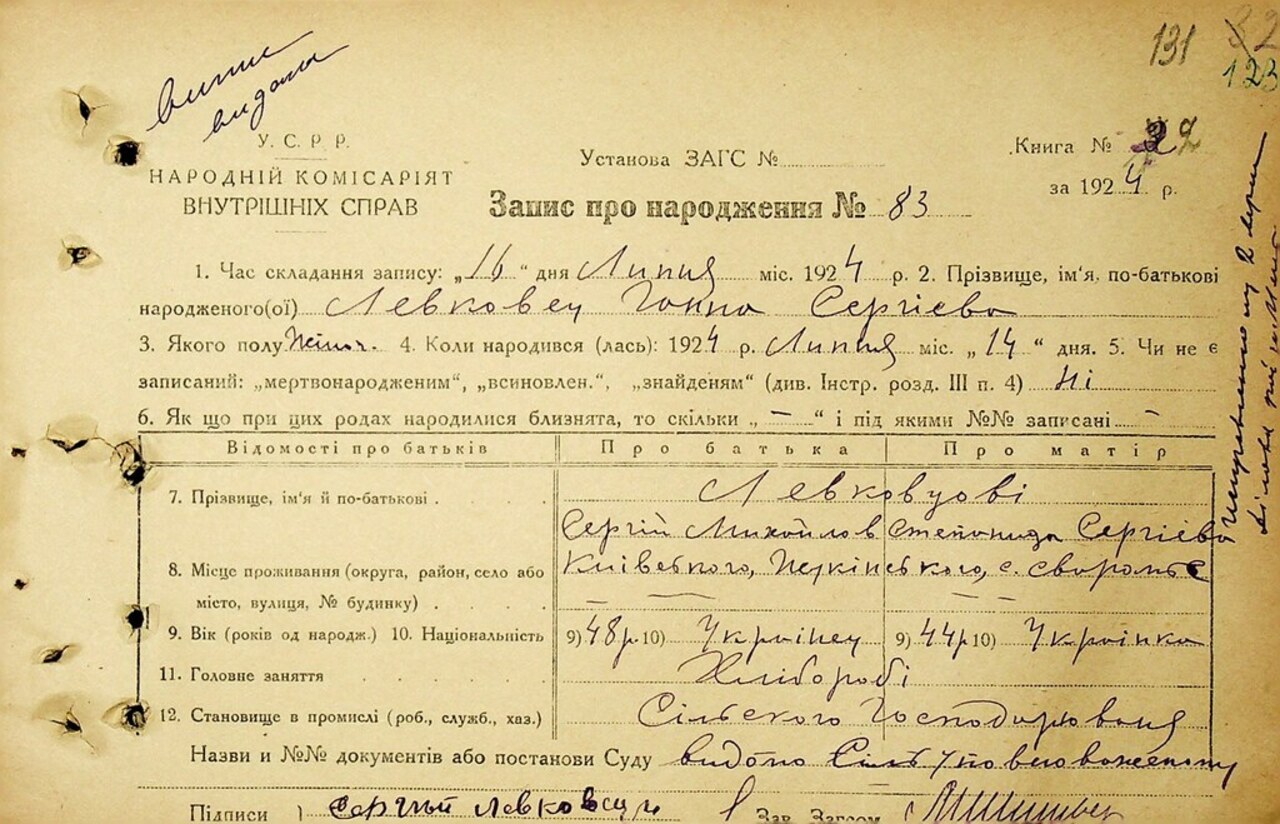 131
123
видала
У. С. Р. Р.
НАРОДНІЙ КОМІСАРІЯТ
ВНУТРІШНІХ СПРАВ
Установа ЗАГС №
Книга № 2
за 1924 р.
Запис про народження № 83
1. Час складання запису: „16“ дня Липця міс. 1924 р. 2. Прізвище, ім'я, по-батькові
народженого(ої) Левковец Ганна Сергієва
3. Якого полу Жіноч. 4. Коли народився (лась): 1924 р. Липця міс. „14“ дня. 5. Чи не є
записаний: „мертвонародженим“, „всиновлен.“, „знайденям“ (див. Інстр. розд. III п. 4) Ні
6. Як що при цих родах народилися близнята, то скільки „—“ і під якими №№ записані —
Відомості про батьків Про батька Про матір
7. Прізвище, ім'я й по-батькові Левковцові
Сергій Михайлов Степанида Сергієва
8. Місце проживання (округа, район, село або Київського, с.
місто, вулиця, № будинку)
9. Вік (років од народж.) 10. Національність 9) 48р. 10) Українец 9) 44р 10) Українка
11. Головне заняття Хлібороби
12. Становище в промислі (роб., служб., хаз.) Сільского Господарювання
Назви и №№ документів або постанови Суду видано
Підписи Сергій Зав. Загсом